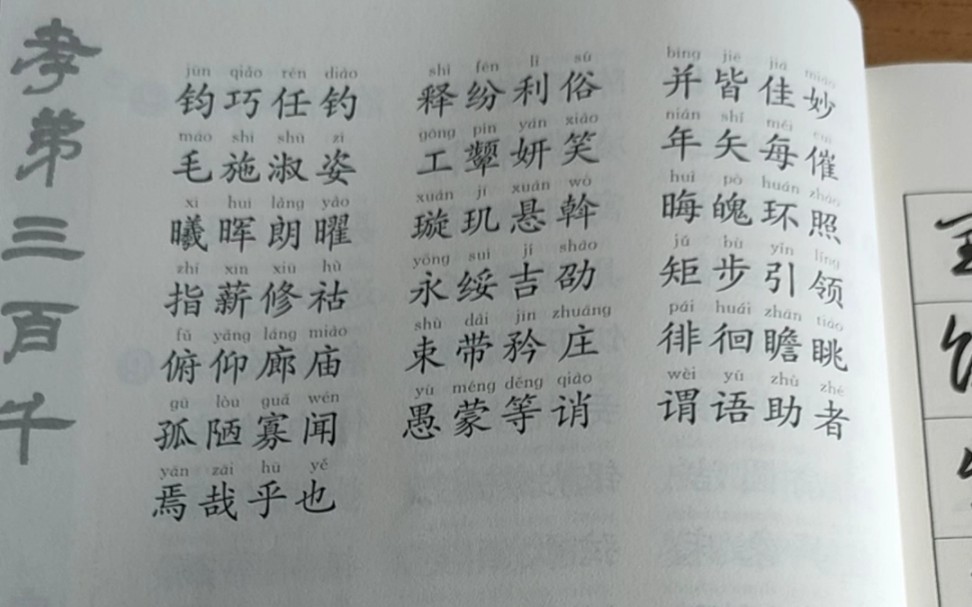 孝弟三百千
jūn qiǎo rén diào shì fēn lì sú bìng jiē jiā miào
钧巧任钓 释纷利俗 并皆佳妙
máo shī shū zī gōng pín yán xiào nián shǐ měi cuī
毛施淑姿 工颦妍笑 年矢每催
xī huī lǎng yào xuán jī xuán wò huì pò huán zhào
曦晖朗曜 璇玑悬斡 晦魄环照
zhǐ xīn xiū hù yǒng suí jí shào jǔ bù yǐn lǐng
指薪修祜 永绥吉劭 矩步引领
fǔ yǎng láng miào shù dài jīn zhuāng pái huái zhān tiào
俯仰廊庙 束带矜庄 徘徊瞻眺
gū lòu guǎ wén yú méng děng qiào wèi yǔ zhù zhě
孤陋寡闻 愚蒙等诮 谓语助者
yān zāi hū yě
焉哉乎也